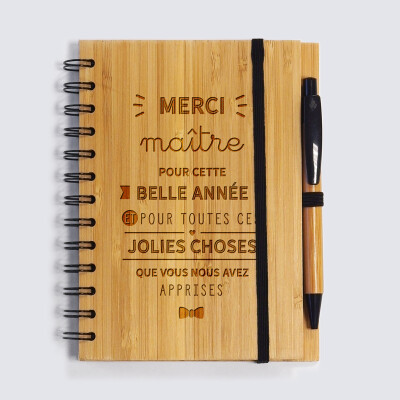 MERCI
maître
POUR CETTE
BELLE ANNÉE
ET POUR TOUTES CES
JOLIES CHOSES
QUE VOUS NOUS AVEZ
APPRISES